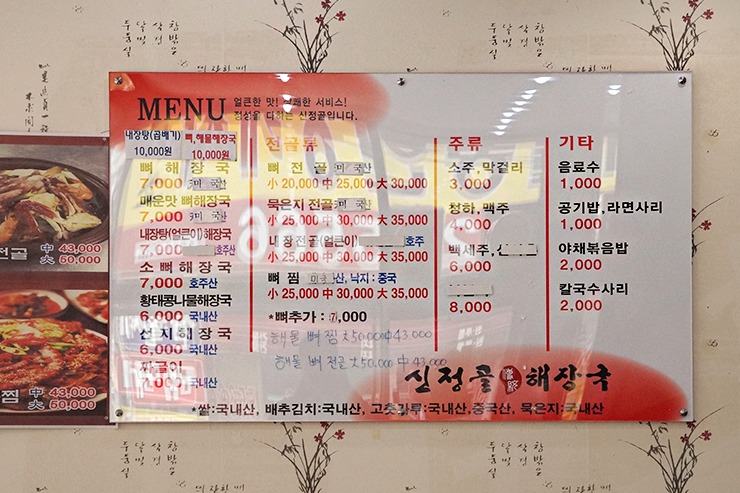 MENU
얼큰한 맛! 상쾌한 서비스!
정성을 다하는 신정골입니다.
내장탕(곱배기)
10,000원
뼈,해물해장국
10,000원
뼈 해 장 국
7,000 국산
매운맛 뼈해장국
7,000 국산
내장탕(얼큰이)해장국
7,000 호주산
소 뼈 해 장 국
7,000 호주산
황태콩나물해장국
6,000 국내산
선 지 해 장 국
6,000 국내산
7,000 국내산
전골류
뼈 전 골 국산
小 20,000 中 25,000 大 30,000
묵은지 전골 국산
小 25,000 中 30,000 大 35,000
내장전골(얼큰이) 호주
小 25,000 中 30,000 大 35,000
뼈 찜 산, 낙지:중국
小 25,000 中 30,000 大 35,000
*뼈추가 : 7,000
해물 뼈 찜 大50,000 中43,000
해물 뼈 전골 大50,000 中 43,000
주류
소주,막걸리
3,000
청하,맥주
4,000
백세주,
6,000
8,000
기타
음료수
1,000
공기밥,라면사리
1,000
야채볶음밥
2,000
칼국수사리
2,000
신정골 해장국
*쌀:국내산, 배추김치:국내산, 고춧가루:국내산,중국산, 묵은지:국내산
전골 中 43,000
大 50,000
찜 中 43,000
大 50,000